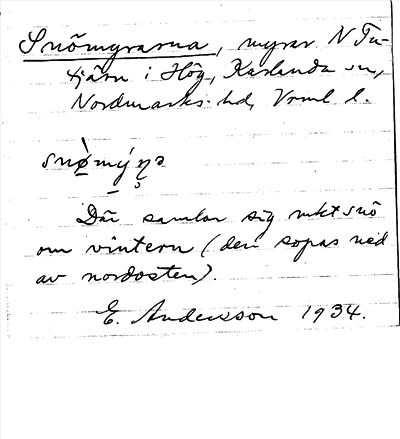 Snömyrarna, myrar N Fu-
tjärn i Hög, Karlanda sn,
Nordmarks hd, Vrml. l.
snø̀mýṇ̊ə
Där samlar sig mkt snö
om vintern (den sopas ned
av nordosten).
E. Andersson 1934.